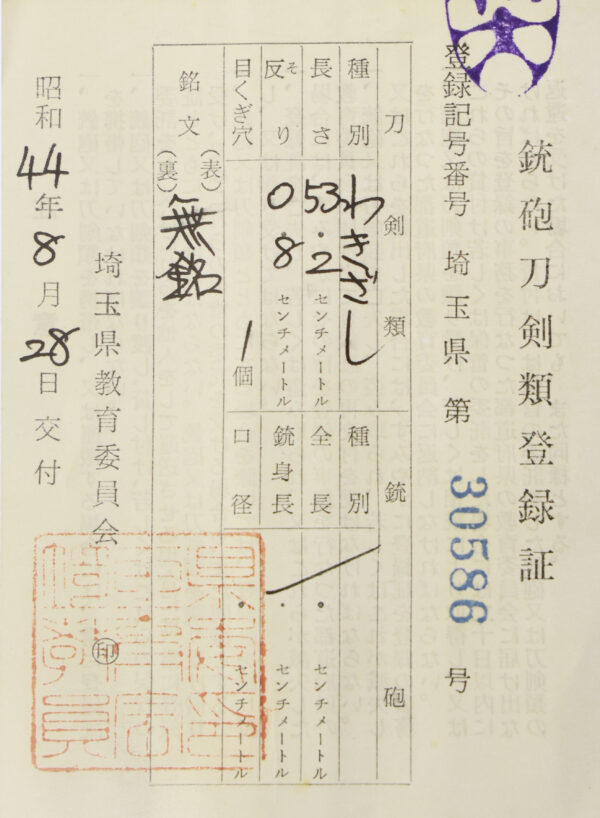 銃砲刀剣類登録証
登録記号番号 埼玉県 第 30586 号
刀剣類
種別 わきざし
長さ 53.2 センチメートル
反り 0.8 センチメートル
そ
目くぎ穴 1個
銘文 (表) 無銘
(裏)
銃砲
種別
全長 . センチメートル
銃身長 . センチメートル
口径 . センチメートル
埼玉県教育委員会 ㊞
昭和44年8月28日交付